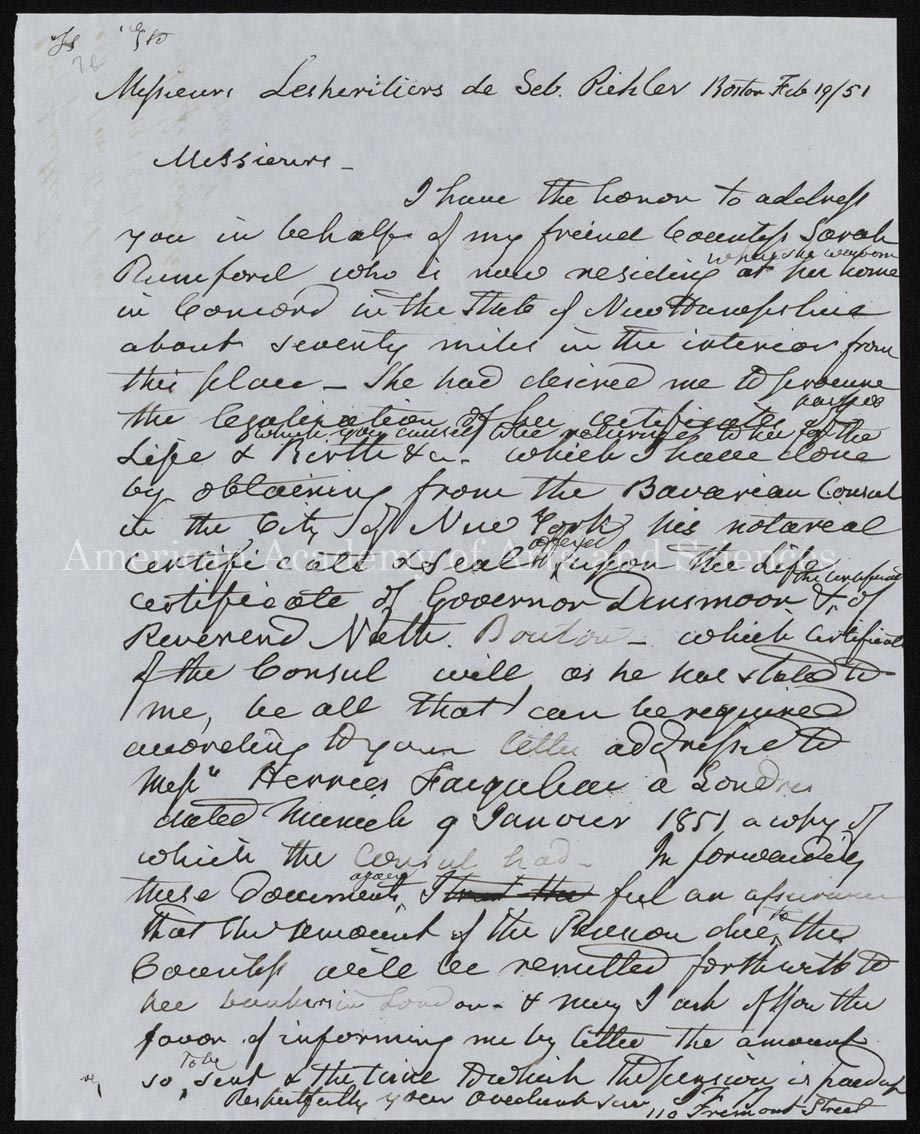 Messieurs Lesheritiers de Seb. Pichler Boston Feb 19/51
Messieurs -
I have the honor to address
you in behalf of my friend Countess Sarah
Rumford who is now residing at her home
where she was born
in Concord in the State of New Hampshire
about seventy miles in the interior from
this place - She had desired me to procure
the legalization of her certificate
which you caused to be returned to her for the purpose
Life & Birth &c - which I have done
by obtaining from the Bavarian Consul
in the City of New York his notarial
certificate & seal affixed upon the Life
certificate of Governor Dinsmoor & the certificate of
Reverend Nath. Bouton - which certificate
of the Consul will as he has stated to
me, be all that can be required
according to your letter addressed to
Messrs Herries Farquhar a Londres
dated Munich 9 Janvier 1851 a copy of
which the Consul had - In forwarding
these documents again, I feel an assurance
that the amount of the Pension due to the
Countess will be remitted forthwith to
her bankers in London - & may I ask of you the
favor of informing me by letter the amount
so to be sent & the time to which the pension is paid up
Respectfully your Obedient
110 Tremont Street
American Academy of Arts and Sciences